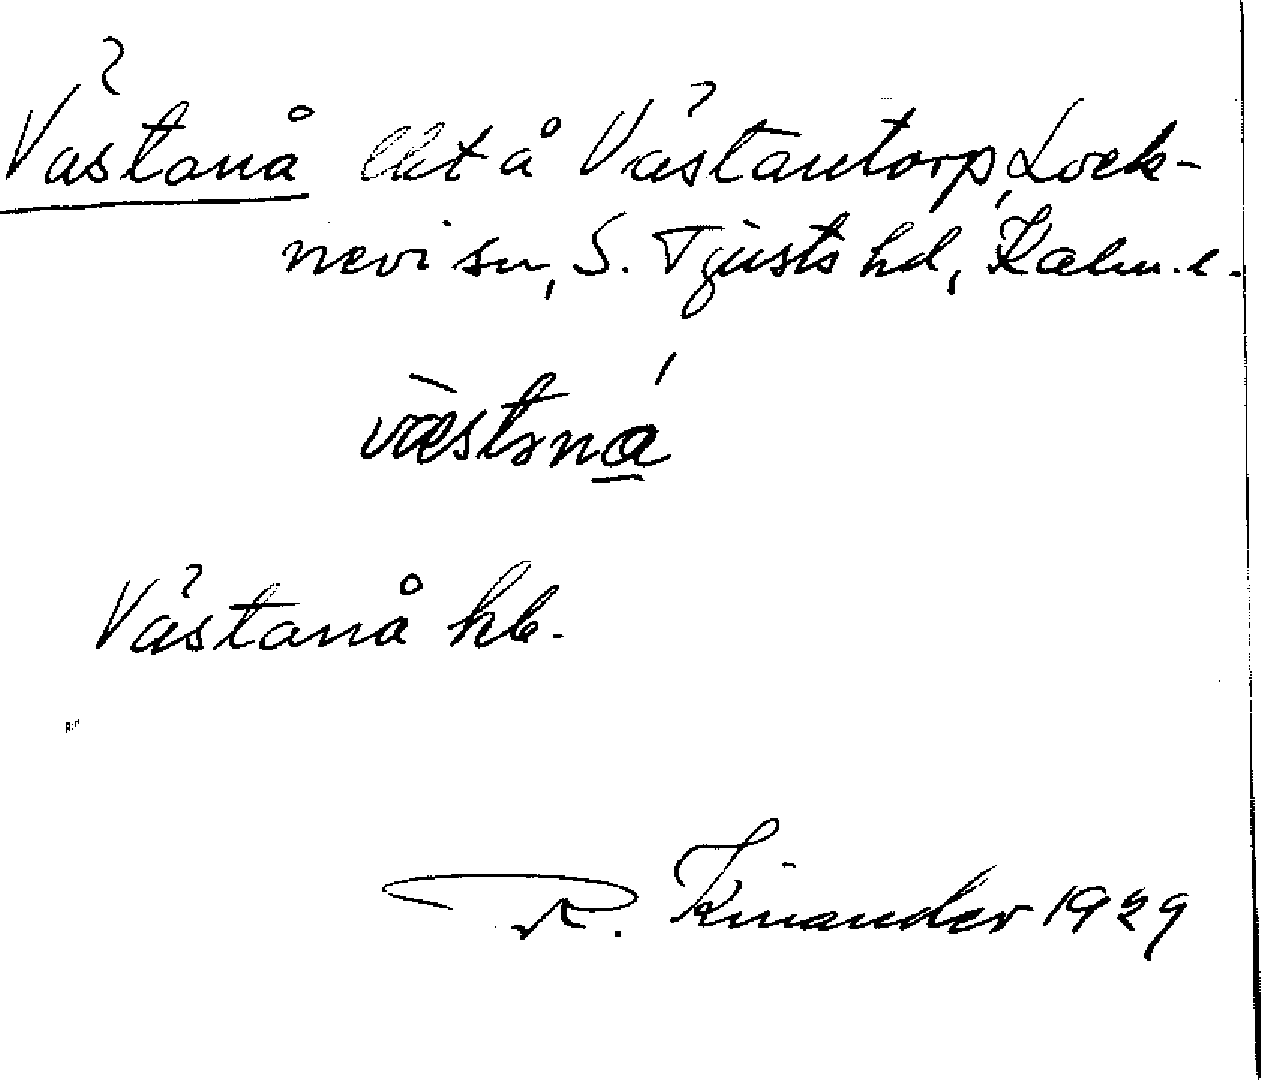 Västanå lht å Västantorp, Lock-
nevi sn, S. Tjusts hd, Kalm. l.
væ̀stɜná̱
Västanå hb.
R. Kinander 1929